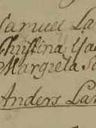 Samuel La
Christina Ja
Margreta
Anders Lar